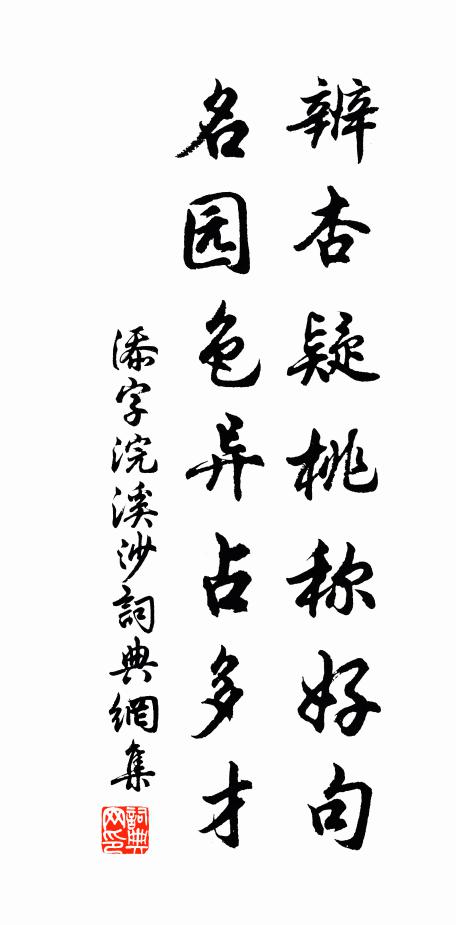 辨杏疑桃称好句
名园色异占多才
添字浣溪沙詞典網集
詞典
网印